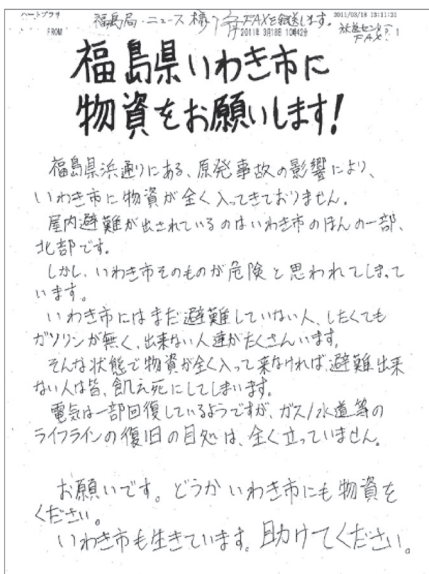 ハートプラザ
福島局・ニュース様 FAXを転送します。
2011/03/18 13:31:31
FROM
2011年 3月18日 10時42分
社会センターFAX P. 1
福島県いわき市に
物資をお願いします!
福島県浜通りにある、原発事故の影響により、
いわき市に物資が全く入ってきておりません。
屋内避難が出されているのはいわき市のほんの一部、
北部です。
しかし、いわき市そのものが危険と思われてしまって
います。
いわき市にはまだ避難していない人、したくても
ガソリンが無く、出来ない人達がたくさんいます。
そんな状態で物資が全く入って来なければ、避難出来
ない人は皆、飢え死にしてしまいます。
電気は一部回復しているようですが、ガス/水道等の
ライフラインの復旧の目処は、全く立っていません。
お願いです。どうかいわき市にも物資を
ください。
いわき市も生きています。助けてください。